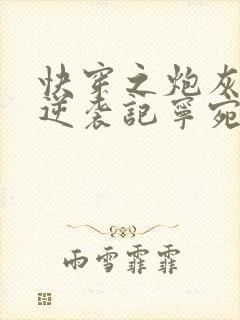 快穿之炮灰
逆袭記寧宛
雨雪霏霏